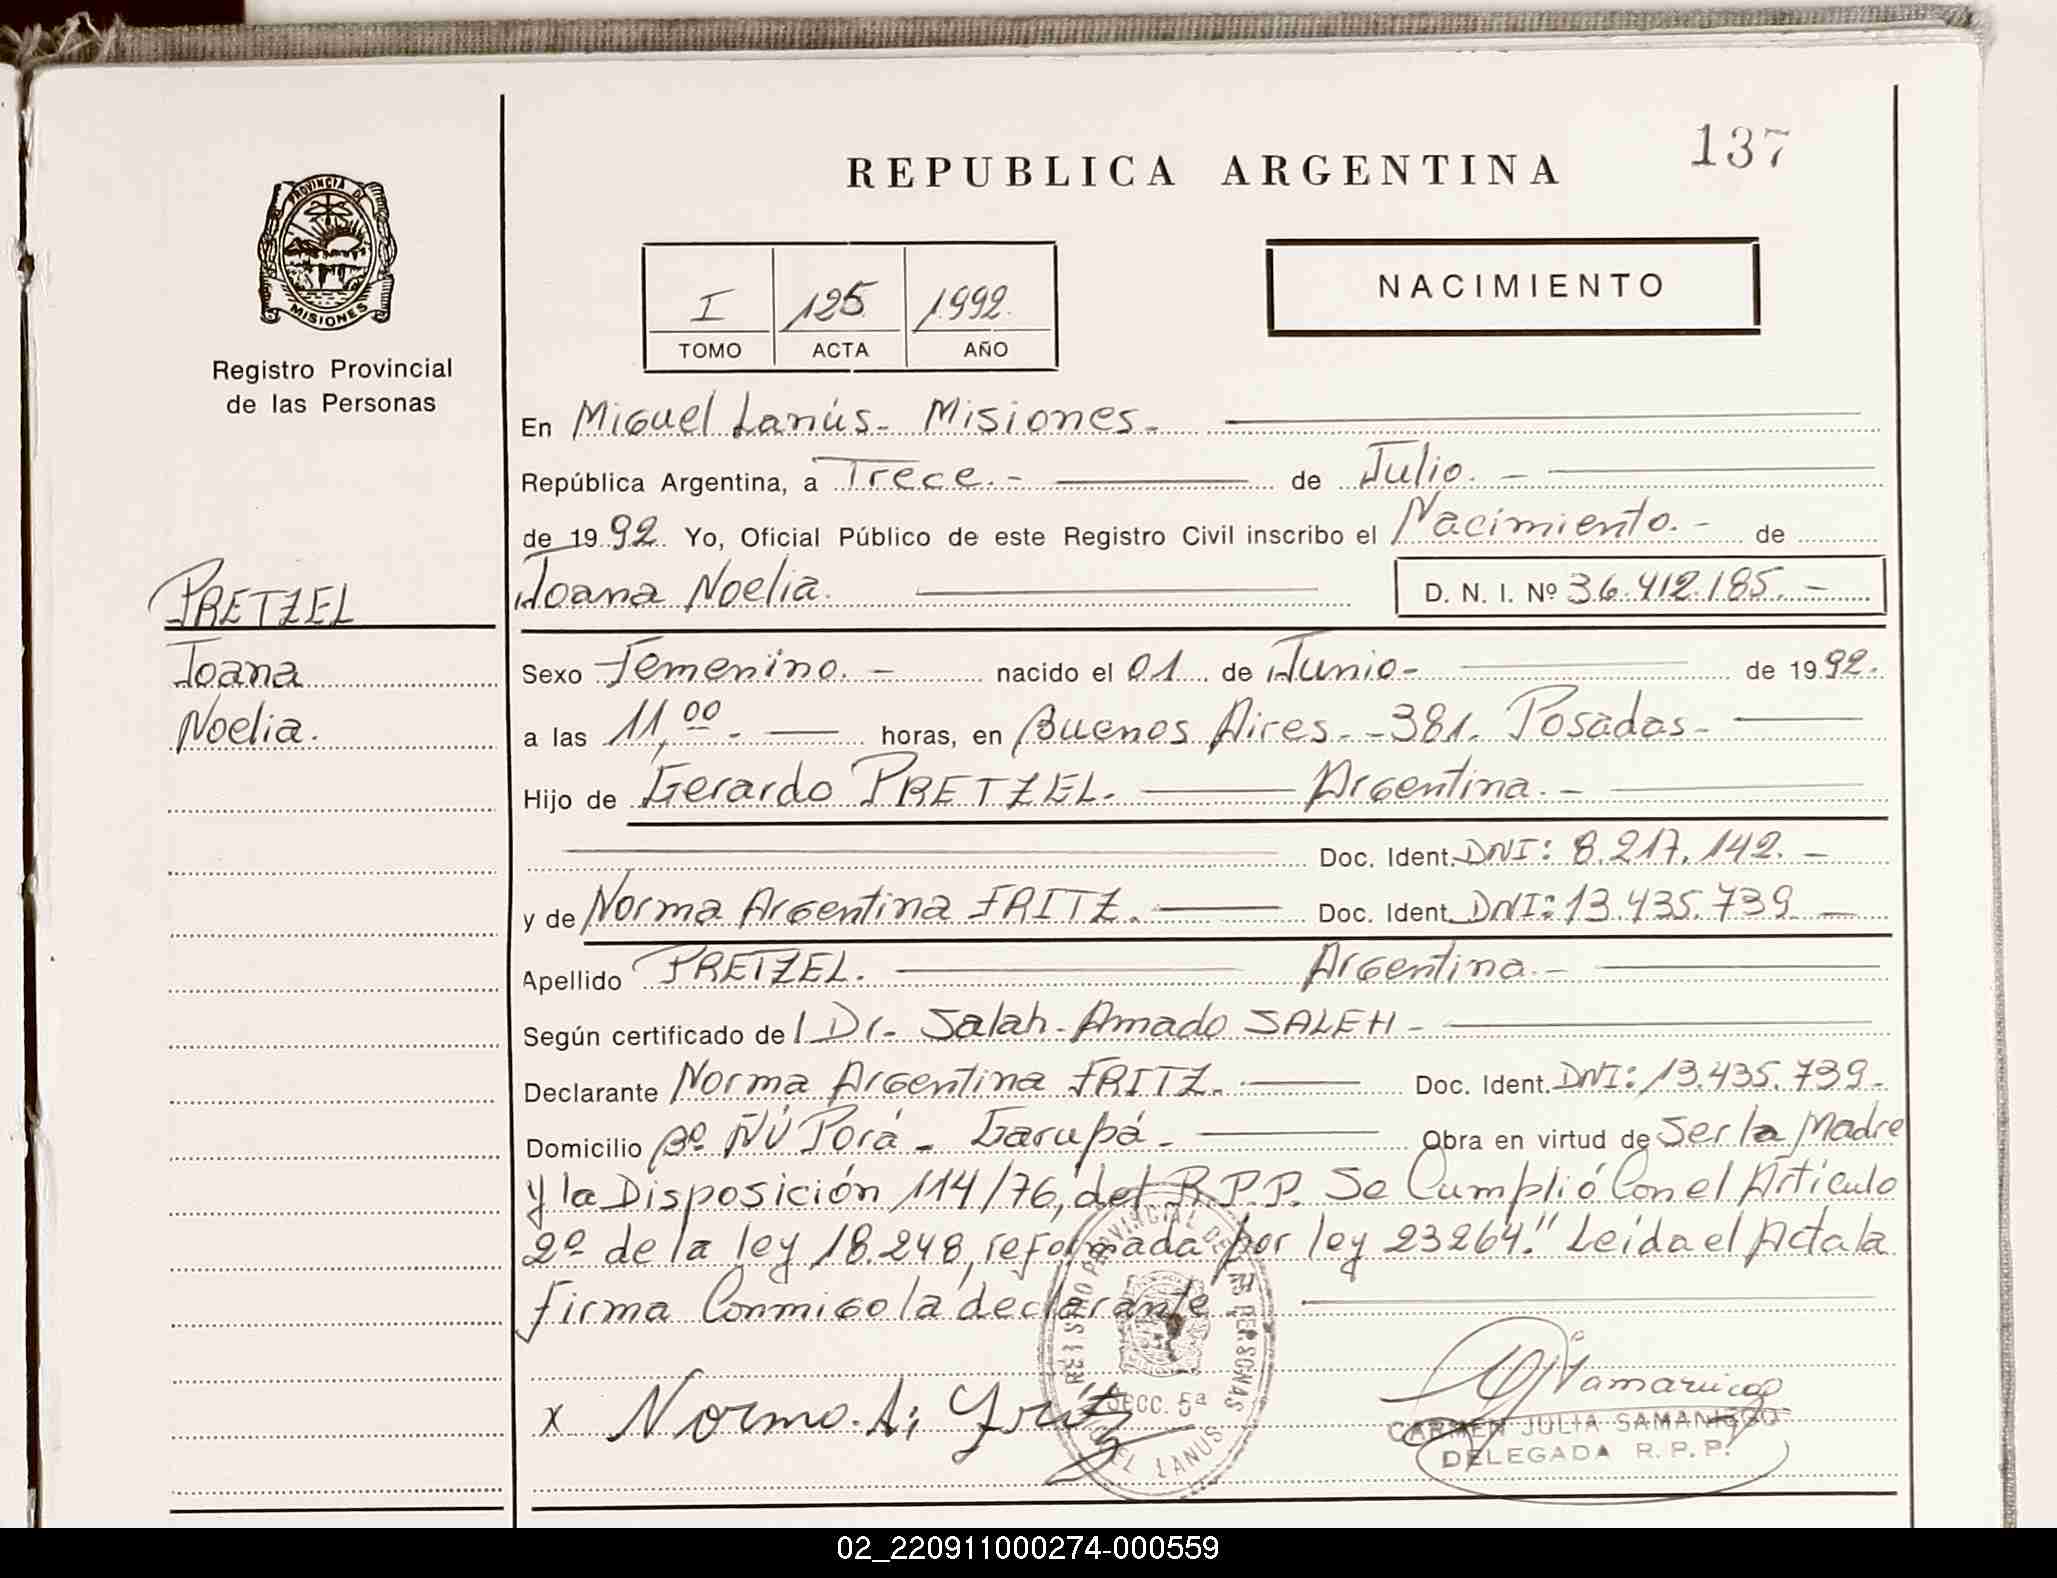 REPUBLICA ARGENTINA
137
PROVINCIA DE
MISIONES
Registro Provincial
de las Personas
NACIMIENTO
I 125 1992.
TOMO ACTA AÑO
En Miguel Lanús - Misiones.-
República Argentina, a Trece.- de Julio.-
de 1992. Yo, Oficial Público de este Registro Civil inscribo el Nacimiento.- de
Joana Noelia. D. N. I. Nº 36.412.185.-
PRETZEL
Joana
Noelia.
Sexo Femenino.- nacido el 01 de Junio- de 1992.
a las 11,00.- horas, en Buenos Aires.-381. Posadas-
Hijo de Gerardo PRETZEL. Argentina.-
Doc. Ident. DNI: 8.217.142.-
y de Norma Argentina FRITZ. Doc. Ident. DNI: 13.435.739-
Apellido PRETZEL. Argentina.-
Según certificado de Dr. Salah Amado SALEH-
Declarante Norma Argentina FRITZ. Doc. Ident. DNI: 13.435.739-
Domicilio Bº ÑÚ Porá - Garupá - Obra en virtud de Ser la Madre
y la Disposición 114/76, del R.P.P. Se Cumplió Con el Artículo
2º de la ley 18.248, reformada por ley 23264." Leída el Acta la
firma Conmigo la declarante
REGISTRO PROVINCIAL DE LAS PERSONAS
SECC. 5ª
x Norma A. Fritz
LANUS
CARMEN JULIA SAMANIEGO
DELEGADA R. P. P.
02_220911000274-000559